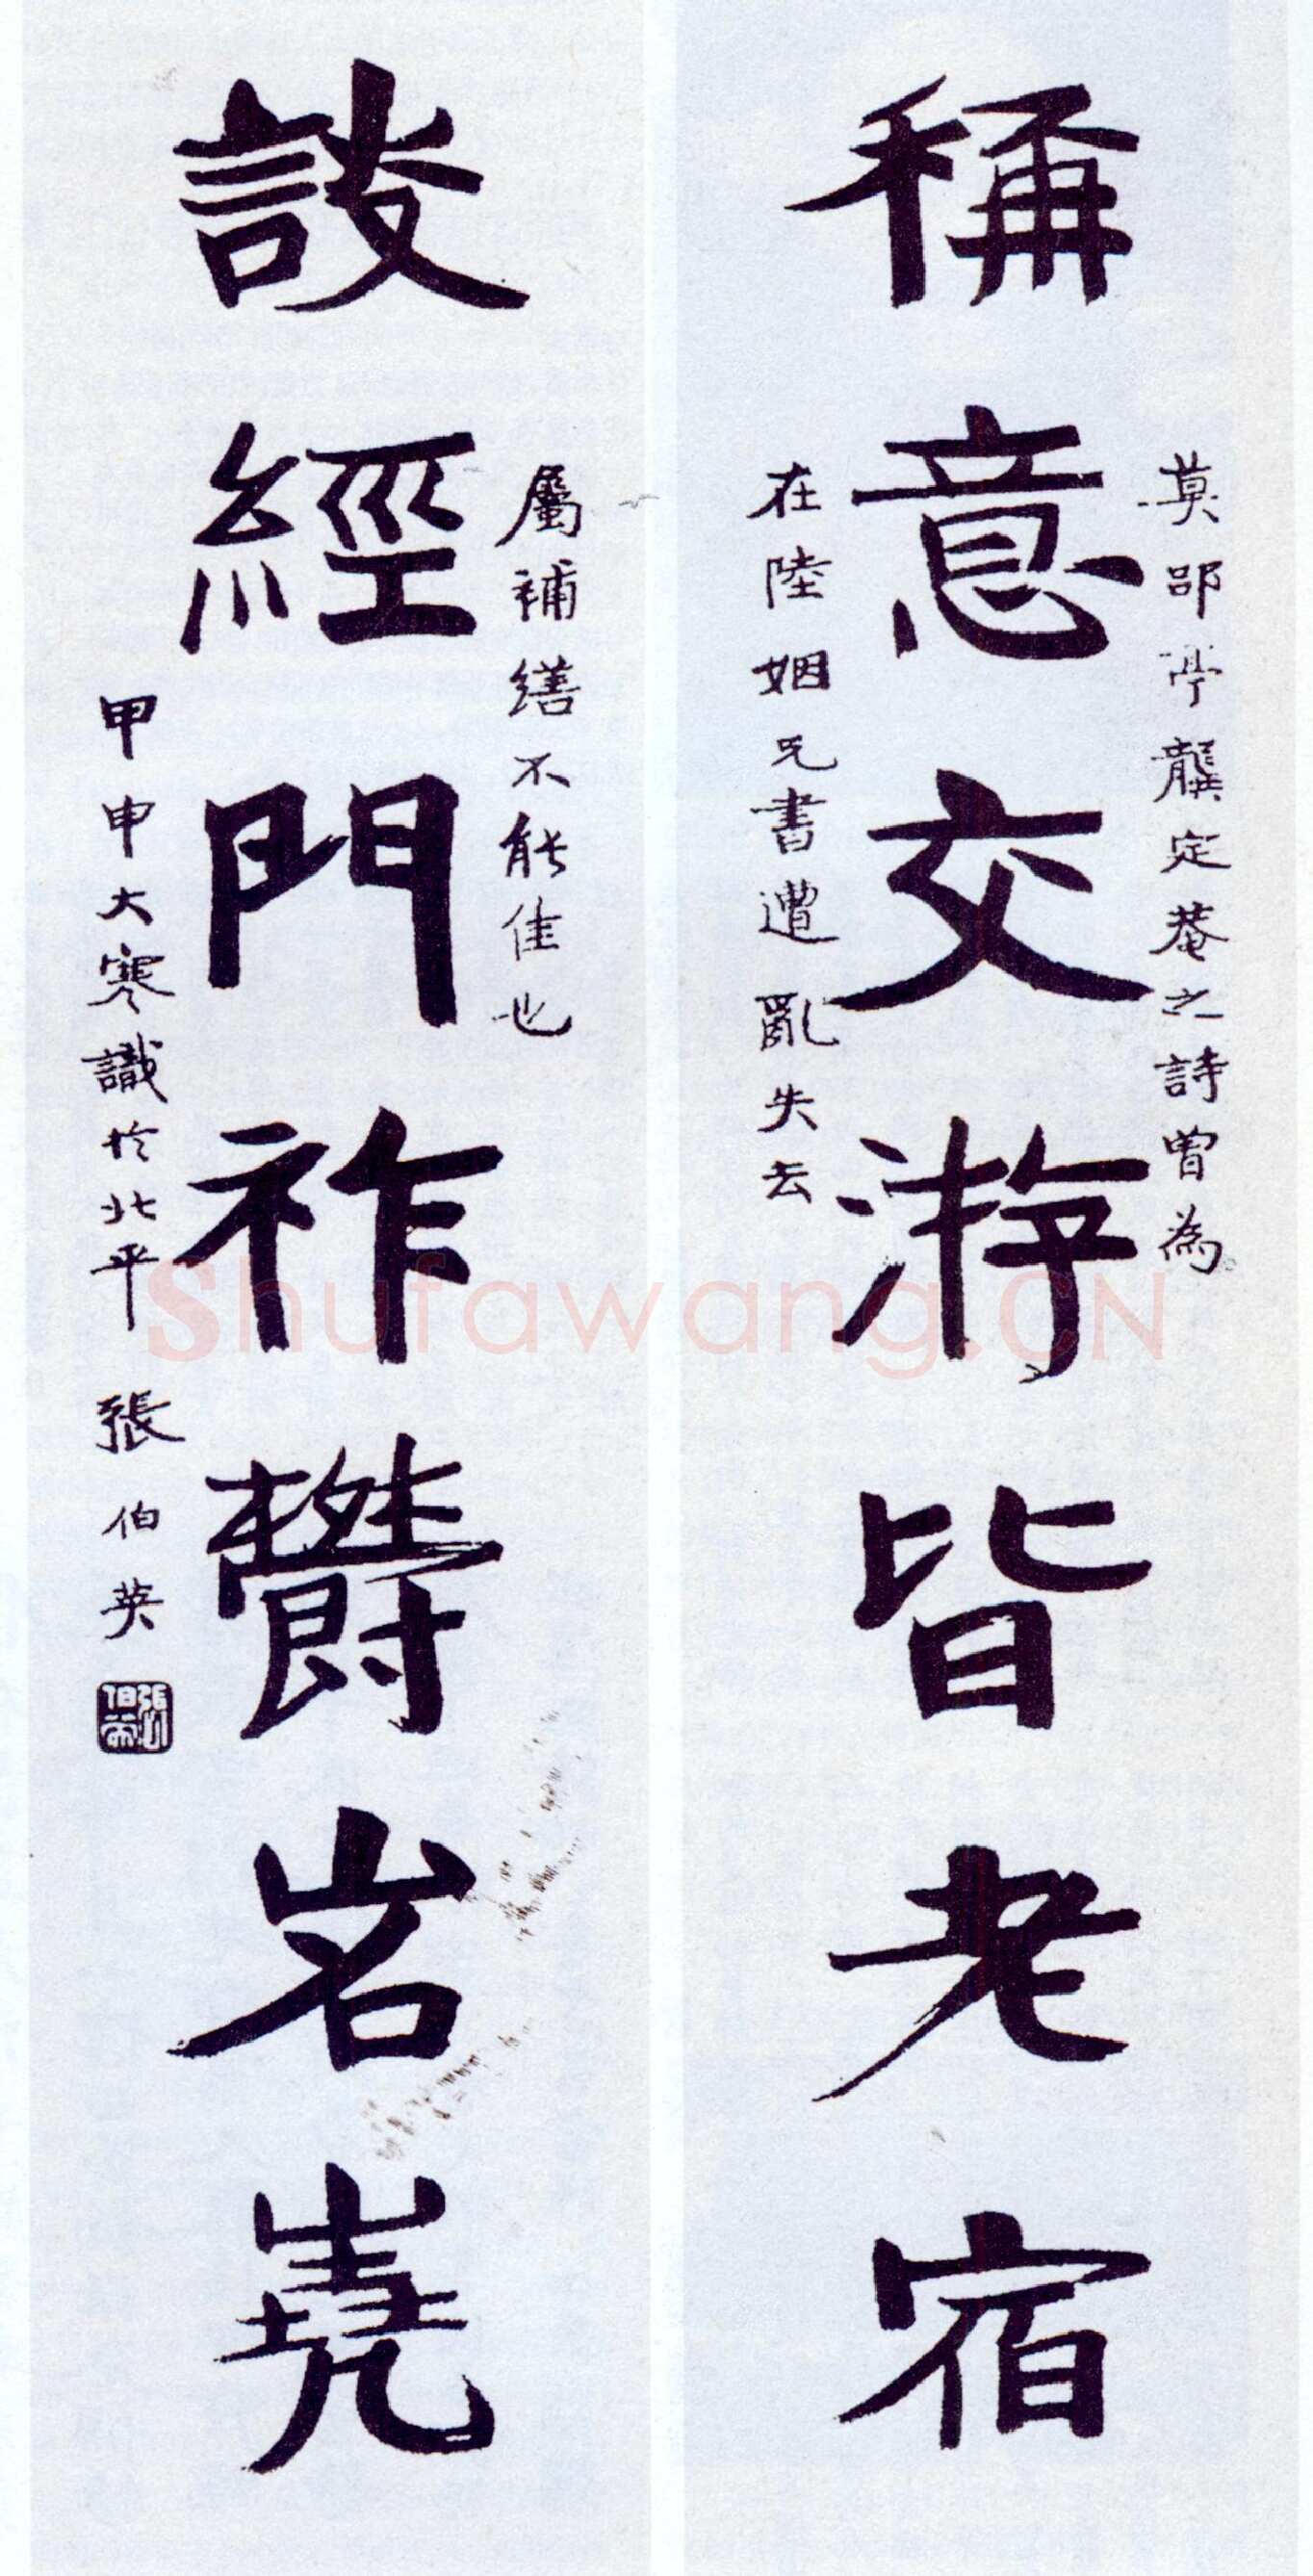 莫郘亭龔定菴之詩曾為
稱意交游皆老宿
在陸姻兄書遭亂失去
屬補繕不能佳也
談經門祚欝岧嶤
甲申大寒識於北平 張伯英
Shufawang.CN